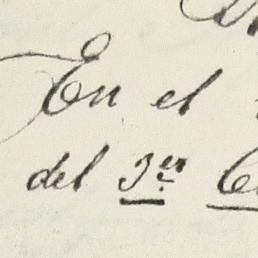 En el
del 3er